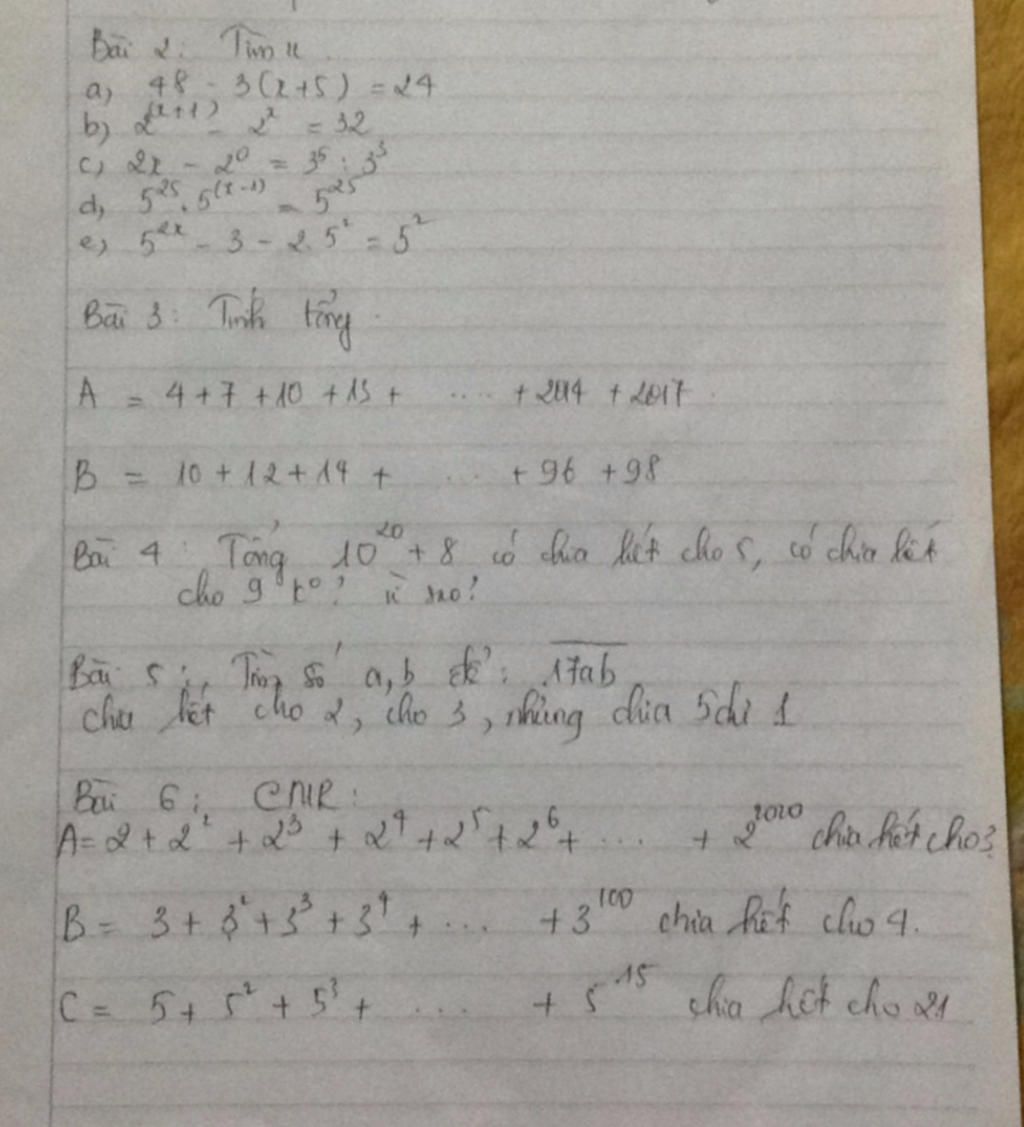 Bài 2: Tìm x
a) 48 - 3(x+5) = 24
b) 2^(x+1) - 2^x = 32
c) 2x - 2^0 = 3^5 : 3^3
d) 5^25 . 5^(x-1) = 5^25
e) 5^2x - 3 - 2. 5^2 = 5^2
Bài 3: Tính tổng
A = 4 + 7 + 10 + 13 + .... + 2014 + 2017
B = 10 + 12 + 14 + ... + 96 + 98
Bài 4: Tổng 10^20 + 8 có chia hết cho 5, có chia hết
cho 9 k°? vì sao?
Bài 5: Tìm số a,b để: 17ab
chia hết cho 2, cho 3, nhưng chia 5 dư 1
Bài 6: CMR:
A = 2 + 2^2 + 2^3 + 2^4 + 2^5 + 2^6 + .... + 2^2020 chia hết cho 3
B = 3 + 3^2 + 3^3 + 3^4 + .... + 3^100 chia hết cho 4.
C = 5 + 5^2 + 5^3 + .... + 5^15 chia hết cho 21